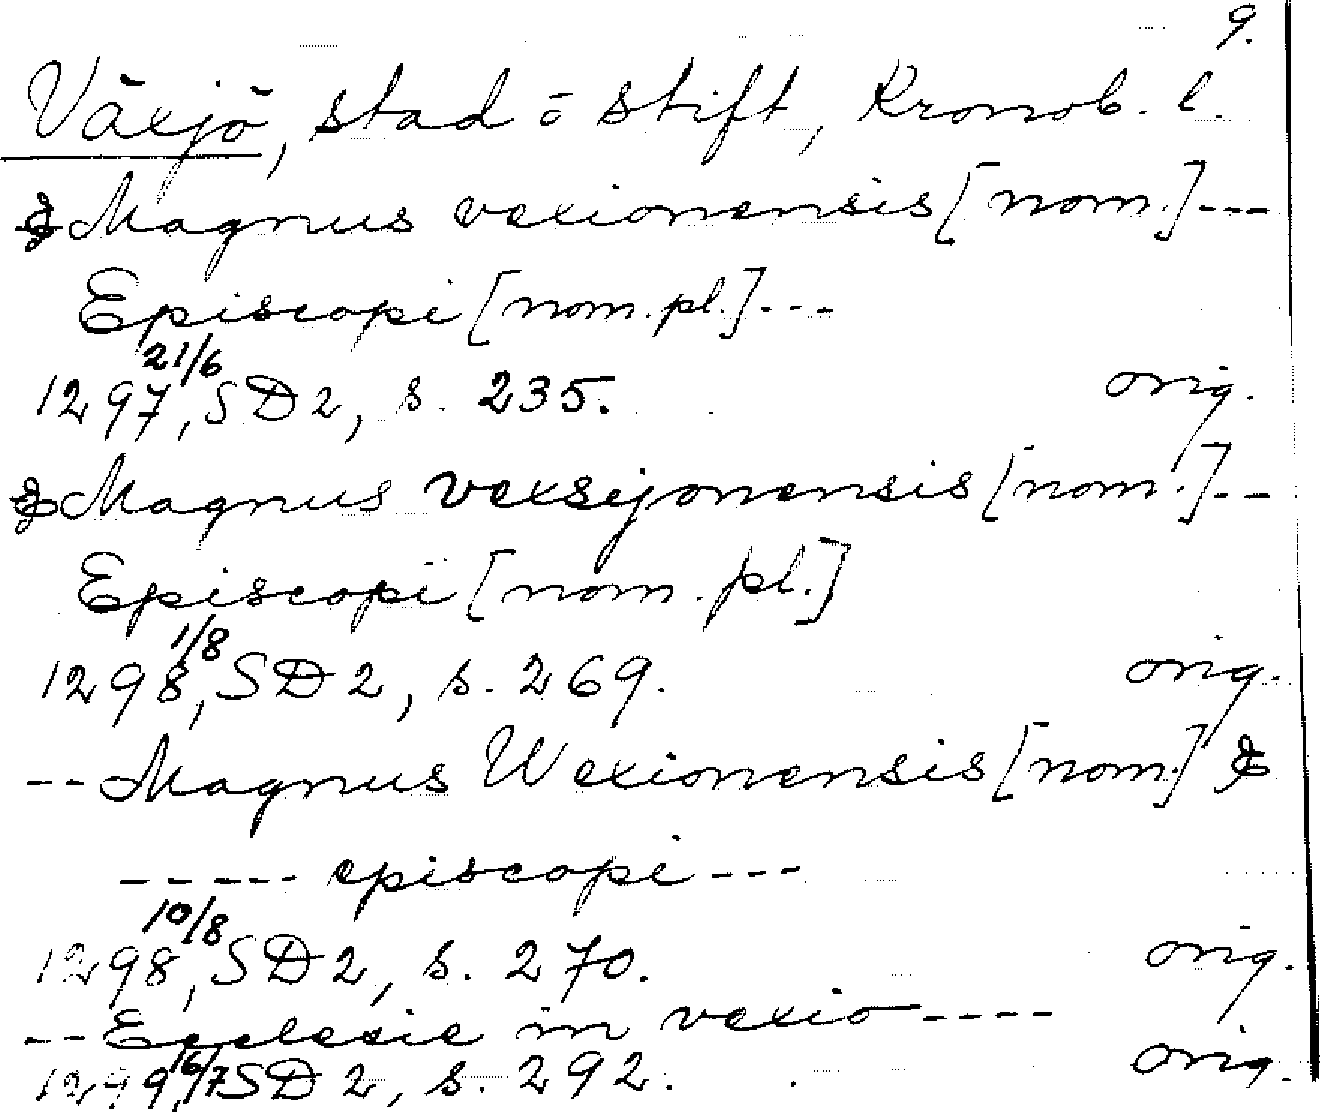 9.
Växjö, stad o stift, Kronob. l.
& Magnus vexionensis [nom.] ---
Episcopi [nom. pl.] ---
1297 21/6, SD 2, s. 235. orig.
& Magnus vexsejonensis [nom.] --
Episcopi [nom. pl.]
1298 1/8, SD 2, s. 269. orig.
-- Magnus Wexionensis [nom.] &
----- episcopi ---
1298 10/8, SD 2, s. 270. orig.
-- Ecclesie in vexio ----
1299 16/7, SD 2, s. 292. orig.